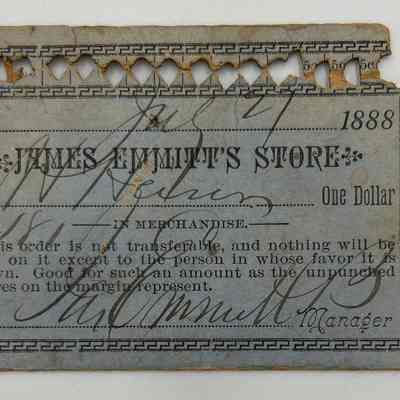 5c 5c 5c
July 27 1888
JAMES EMMITT'S STORE
One Dollar
IN MERCHANDISE.
is order is not transferable, and nothing will be
on it except to the person in whose favor it is
wn. Good for such an amount as the unpunched
res on the margin represent.
Jas Emmitt
Manager